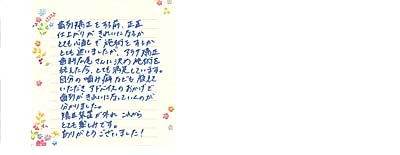 歯列矯正をする前、正直
仕上がりがきれいになるか
とても心配で 施術をするか
とても迷いましたが、アクア矯正
歯科 さんに決め施術を
終えた今、とても満足しています。
自分の噛み癖なども教えて
いただき アドバイスのおかげで
歯列がきれいになっていくのが
分かりました。
矯正装置が外れ これから
とても楽しみです。
ありがとうございました!